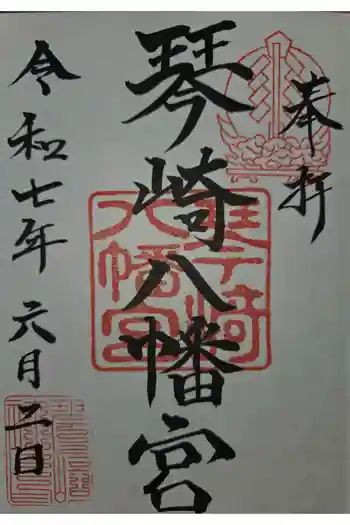 奉拝
琴崎八幡宮
令和七年 六月二日
琴崎
八幡宮